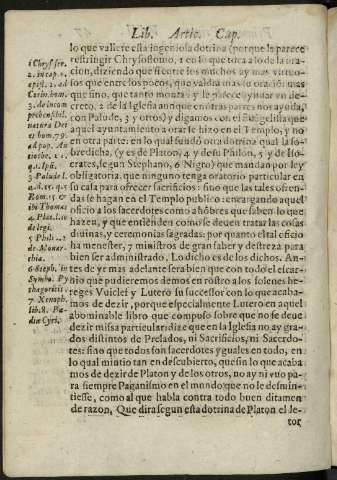 Lib. Artic. Cap.
lo que valiere esta ingeniosa dotrina (porque la parece
restringir Chrysostomo, 1 en lo que toca a lo de la ora-
cion, diziendo que si entre los muchos ay mas virtuo-
sos que entre los pocos, que valdra mas su oraciõ: mas
que sino, que tanto monta: y le parece ayudar vn de-
creto, 2 de la Iglesia aunque en otras partes nos ayuda,
con Palude, 3 y otros) y digamos con el Euãgelista que
aquel ayuntamiento a orar se hizo en el Templo, y no
en otra parte: en lo qual fundô otra dotrina qual la so-
bredicha, (y es de Platon, 4 y de su Philon, 5 y de Iso-
crates, segun Stephano, 6 Nigro) que mandan por ley
obligatoria, que ninguno tenga oratorio particular en
su casa para ofrecer sacrificios: sino que las tales ofren-
das se hagan en el Templo publico: encargando aquel
oficio a los sacerdotes como a hõbres que saben lo que
hazen, y que entienden como se deuen tratar las cosas
diuinas, y ceremonias sagradas: por quanto el tal oficio
ha menester, 7 ministros de gran saber y destreza para
bien ser administrado. Lo dicho es de los dichos. An-
tes de yr mas adelante sera bien que con todo el escar-
nio que pudieremos demos en rostro a los solenes he-
reges Vuiclef y Lutero su successor con lo que acaba-
mos de dezir, porque especialmente Lutero en aquel
abominable libro que compuso sobre que no se deue
dezir missa particular: dize que en la Iglesia no ay gra-
dos distintos de Prelados, ni Sacrificios, ni Sacerdo-
tes: sino que todos son sacerdotes yguales en todo, en
lo qual mintio tan en descubierto, que sin lo que acaba-
mos de dezir de Platon y de los otros, no ay ni vuo pa-
ra siempre Paganismo en el mundo que no le desmin-
tiesse, como al que habla contra todo buen ditamen
de razon, Que dira segun esta dotrina de Platon el le-
tor
1 Chrysost.
3 Palude
ibi Thomas
4 Plat.l.10
de legi.
5 Philo
de Monar-
chia.
6 Steph. in
Symbo. Py
thagoricis
7 Xenoph.
lib.8. Pæ-
diæ Cyri.